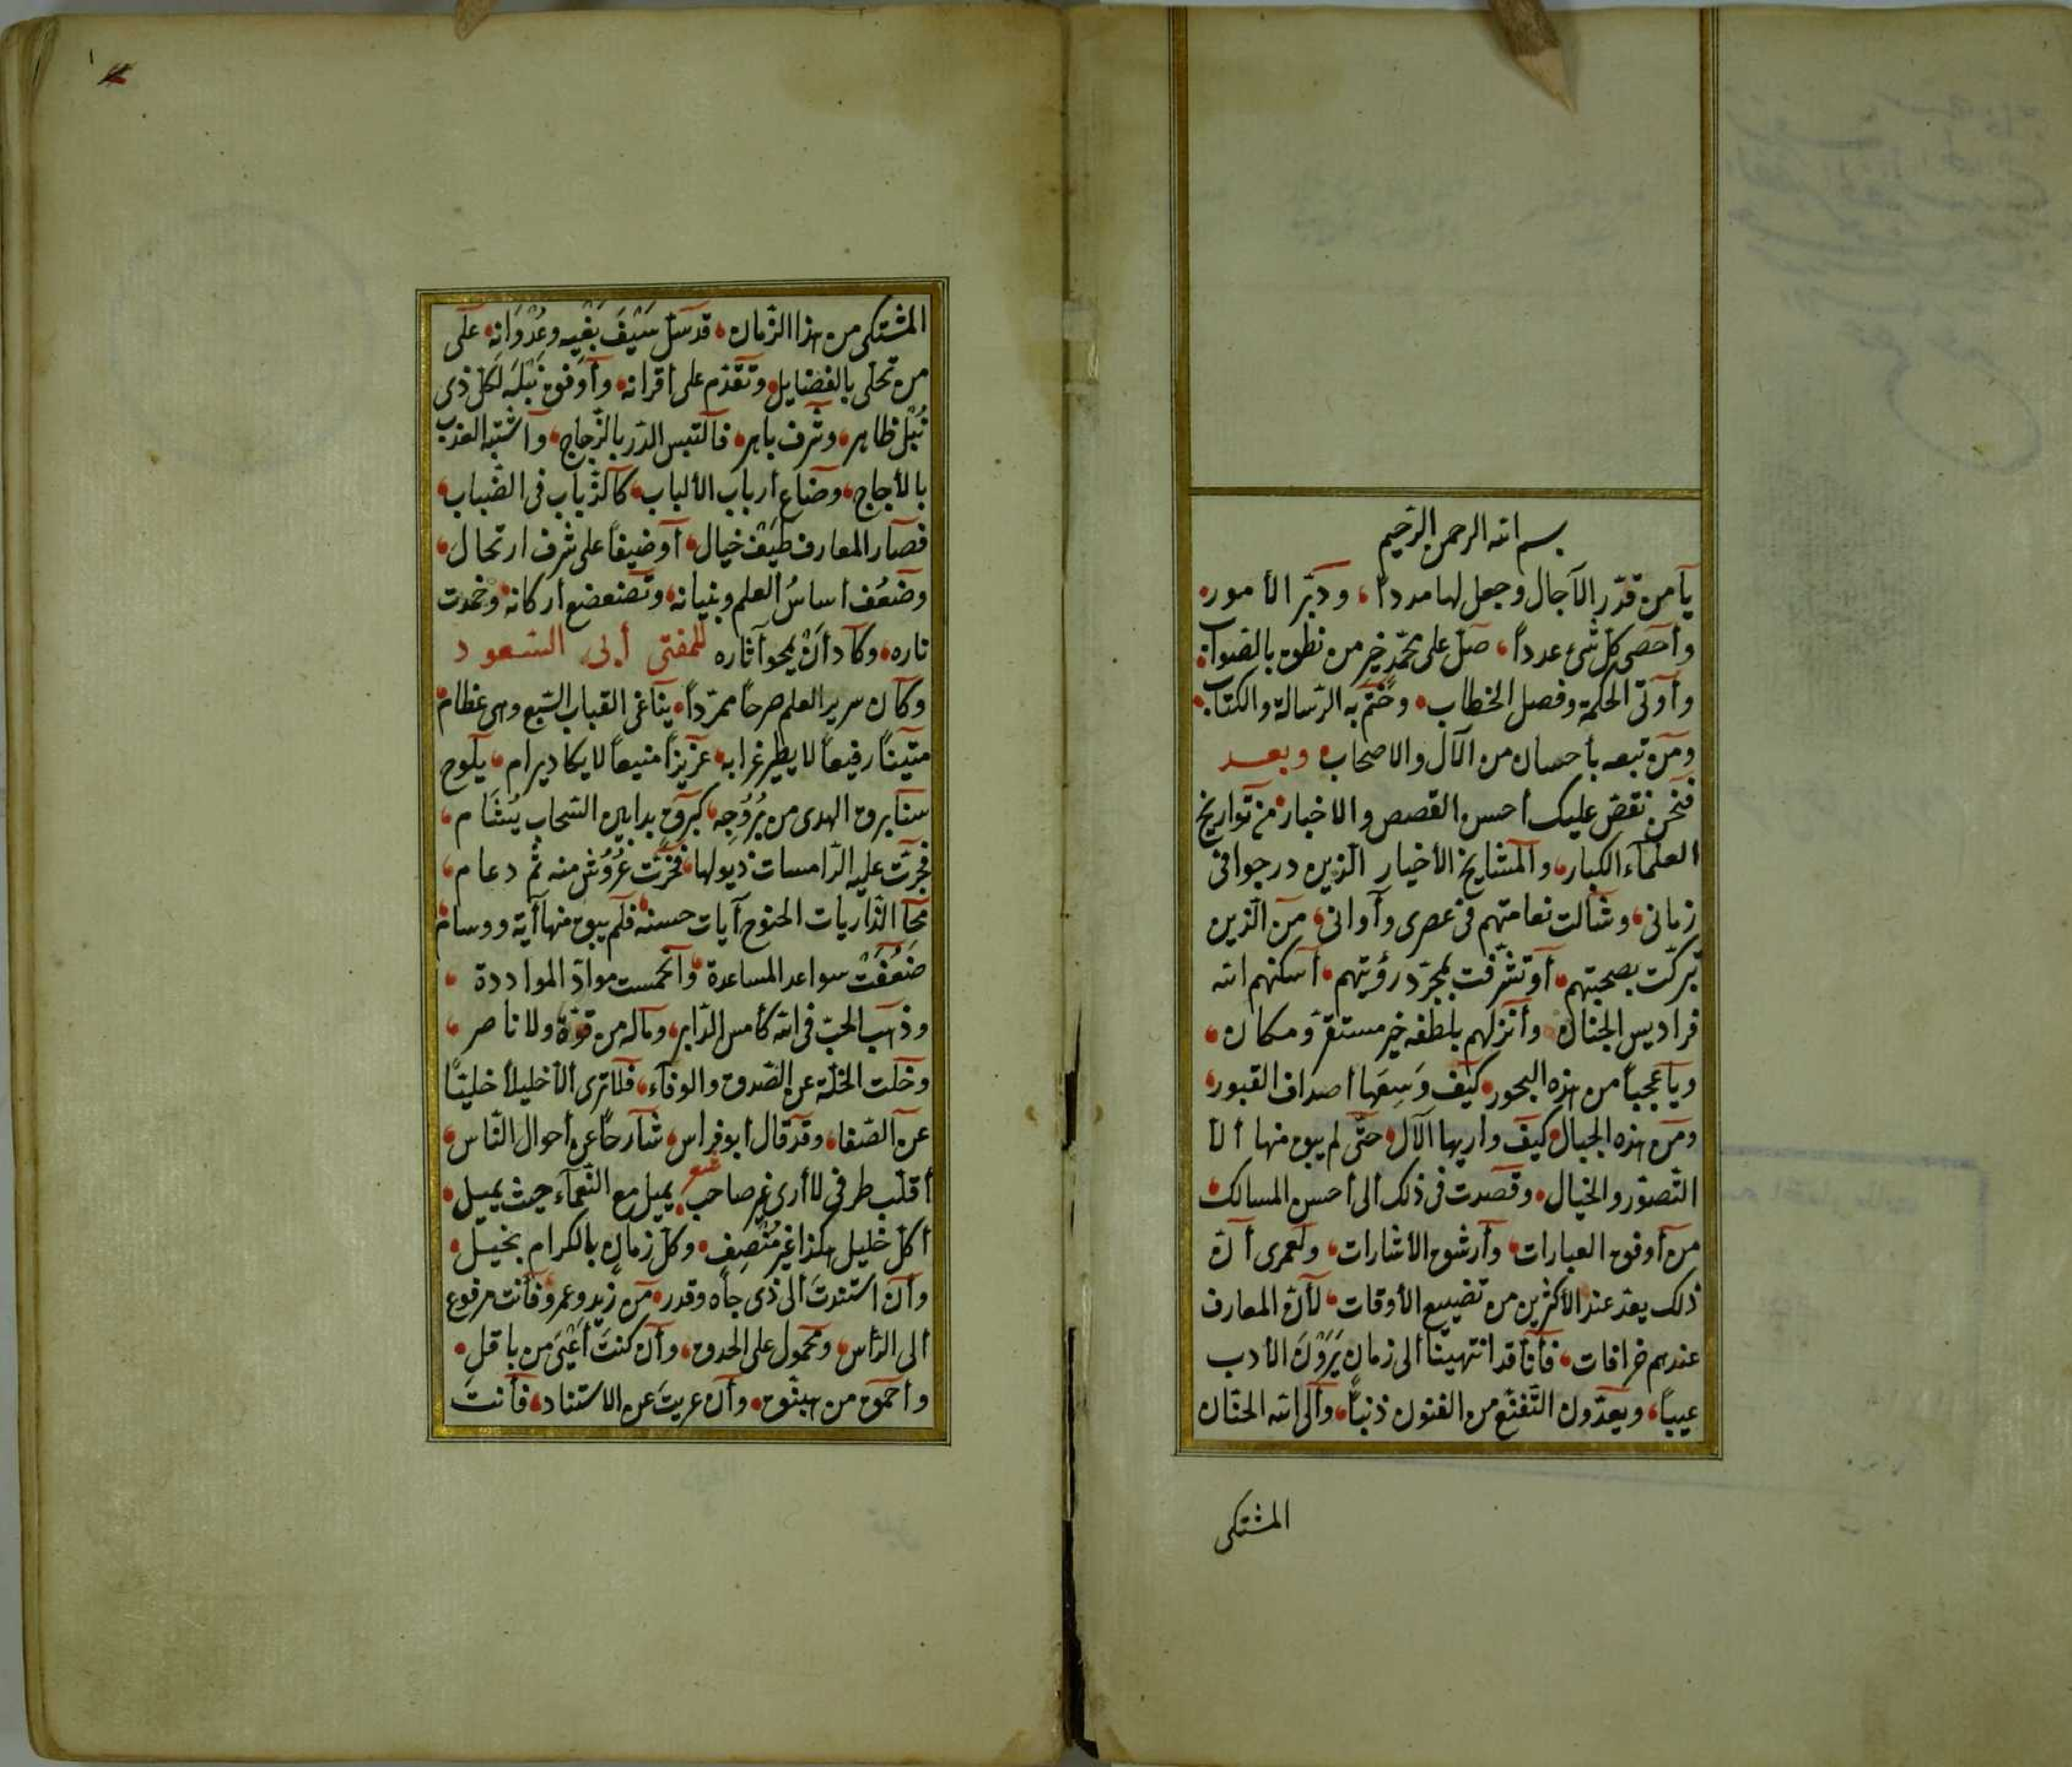 بسم الله الرحمن الرحيم
يا من قدّر الآجال وجعل لها مددا، ودبّر الأمور
وأحصى كل شىء عدداً، صلّ على محمّد خير من نطق بالصّواب
وأوتى الحكمة وفصل الخطاب، وختم به الرّسالة والكتاب
ومن تبعه بأحسان من الآل والاصحاب وبعد
فنحن نقصّ عليك أحسن القصص والاخبار من تواريخ
العلماء الكبار، والمشايخ الأخيار الّذين درجوا فى
زمانى، وشالت نعامتهم فى عصرى وأوانى، من الّذين
تبرّكت بصحبتهم، أو تشرّفت بمجرّد رؤيتهم، أسكنهم الله
فراديس الجنان وأنزلهم بلطفه خير مستقرّ ومكان،
ويا عجباً من هذه البحور، كيف وَسِعَها أصداف القبور،
ومن هذه الجبال كيف واريها الآل، حتّى لم يبق منها ألا
التّصوّر والخيال، وقصدت فى ذلك ألى أحسن المسالك،
من أوفق العبارات، وأرشق الأشارات، ولعمرى أنّ
ذلك يعدّ عند الأكثرين من تضييع الأوقات، لأنّ المعارف
عندهم خرافات، فأنّا قد انتهينا ألى زمان يَرَوْنَ الأدب
عيباً، ويعدّون التّفنّع من الفنون ذنباً، وألى الله الحنّان
المشتكى
المشتكى من هذا الزّمان، قد سلّ سَيْفَ بَغْيِه وعُدْوَانِه، على
من تحلّى بالفضايل، وتقدّم على أقرانه، وأوفق نَبْلَه لكلّ ذى
نُبْل ظاهر، وشرف باهر، فالتبس الدّرّ بالزّجاج، واشتبه العذب
بالأجاج، وضاع أرباب الألباب، كالذّباب فى الضّباب،
فصار المعارف طَيْفَ خيال، أو ضيفاً على شرف ارتحال،
وضَعُف أساسُ العلم وبنيانه، وتضعضع أركانه وخمدت
ناره، وكاد أنْ يمحو آثاره للمفتى أبى السّعود
وكان سرير العلم صرحًا ممرّداً، يناغى القباب السّبع وهى عظام
متيناً رفيعاً لا يطير غرابه، عزيزاً منيعاً لا يكاد يرام، يلوح
سنا برق الهدى من بُرُوجِه، كبرق بدا بين السّحاب يُشَام،
فجرّت عليه الرّامسات ذيولها، فخرّت عُرُوش منه ثمّ دعام،
محا الذّاريات الهنوج آيات حسنه، فلم يبق منها آية ووسام
ضَعُفَتْ سواعد المساعدة، وانحمست موادّ المواددة،
وذهب الحبّ فى الله كأمس الدّابر، وماله من قوّة ولا ناصر،
وخلت الخلّة عن الصّدق والوفاء، فلا ترى ألا خليلاً خليّا
عن الصّفا، وقد قال أبو فراس، شارحًا عن أحوال النّاس،
أقلّب طرفى لا أرى غير صاحب يميل مع النّعماء حيث يميل،
أكلّ خليل هكذا غير مُنْصِفٍ، وكلّ زمانٍ بالكرام بخيل،
وأن استندتَ ألى ذى جاه وقدر، من زيد وعمرو، فأنت مرفوع
ألى الرّأس، ومحمول على الحدق، وأن كنتَ أَعْيَى من باقل،
وأحمق من هبنّق، وأن عريتَ عن الاستناد، فأنت